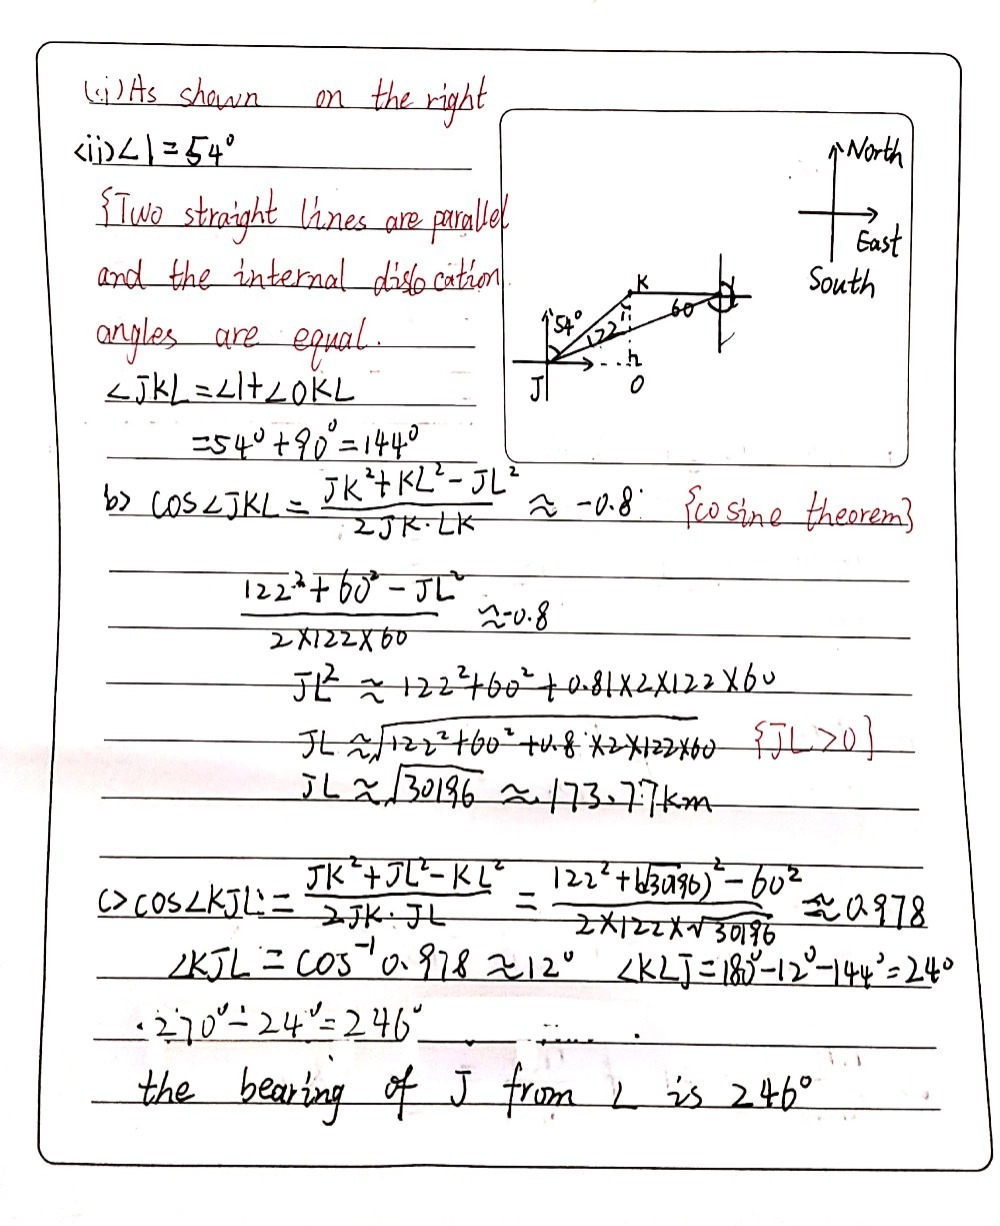 (i) As shown on the right
(ii) ∠1 = 54°
{Two straight lines are parallel
and the internal dislocation
angles are equal.
∠JKL = ∠1 + ∠OKL
= 54° + 90° = 144°
North
East
South
K
54°
60
122
1
J
O
b) cos∠JKL = (JK² + KL² - JL²) / (2JK · LK) ≈ -0.8 {cosine theorem}
(122² + 60² - JL²) / (2×122×60) ≈ -0.8
JL² ≈ 122² + 60² + 0.81×2×122×60
JL ≈ √(122² + 60² + 0.8×2×122×60) {JL>0}
JL ≈ √30196 ≈ 173.77km
c) cos∠KJL = (JK² + JL² - KL²) / (2JK · JL) = (122² + (√30196)² - 60²) / (2×122×√30196) ≈ 0.978
∠KJL = cos⁻¹ 0.978 ≈ 12° ∠KLJ = 180° - 12° - 144° = 24°
270° - 24° = 246°
the bearing of J from L is 246°